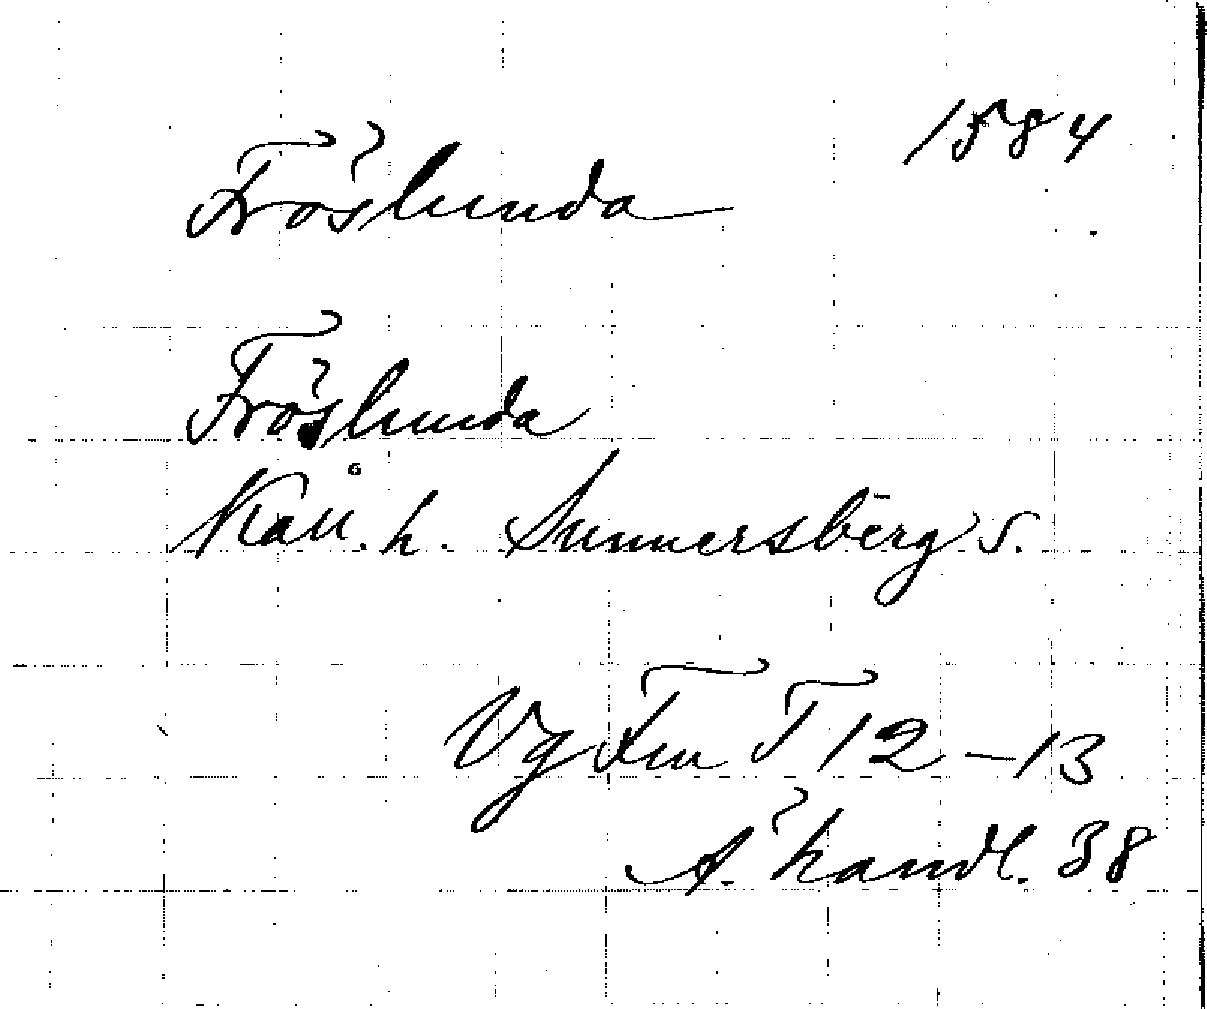 1584
Fröslunda
Fröslunda
Kåll. h. Sunnersberg s.
Vg T 12–13
Ä. handl. 38